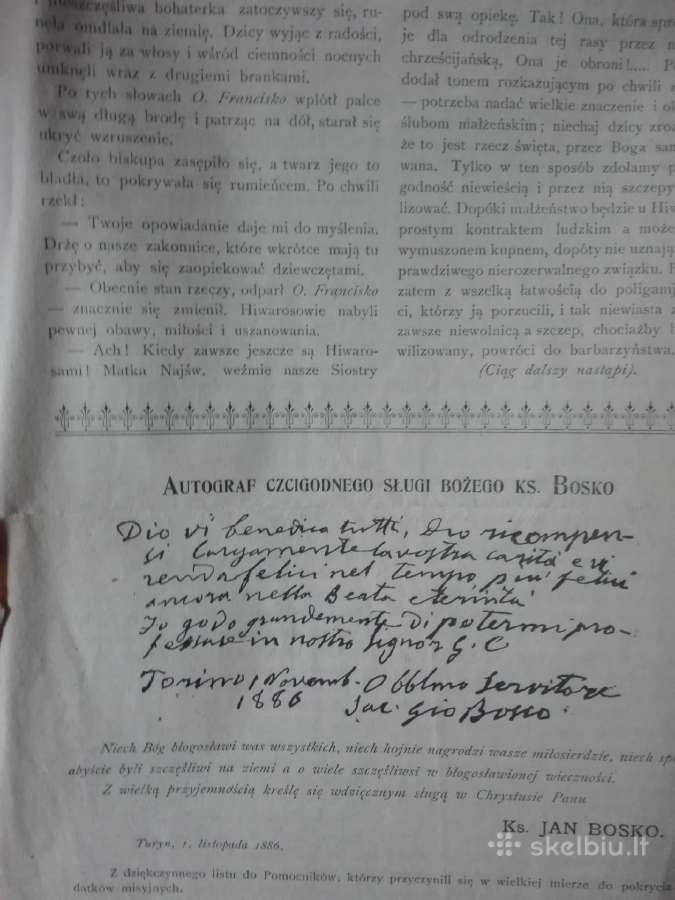 nieszczęśliwa bohaterka zatoczywszy się, ru-
nęła omdlała na ziemię. Dzicy wyjąc z radości,
porwali ją za włosy i wśród ciemności nocnych
umknęli wraz z drugiemi brankami.
Po tych słowach O. Francisko wplótł palce
w swą długą brodę i patrząc na dół, starał się
ukryć wzruszenie.
Czoło biskupa zasępiło się, a twarz jego to
bladła, to pokrywała się rumieńcem. Po chwili
rzekł:
— Twoje opowiadanie daje mi do myślenia.
Drżę o nasze zakonnice, które wkrótce mają tu
przybyć, aby się zaopiekować dziewczętami.
— Obecnie stan rzeczy, odparł O. Francisko
— znacznie się zmienił. Hiwarosowie nabyli
pewnej obawy, miłości i uszanowania.
— Ach! Kiedy zawsze jeszcze są Hiwaro-
sami! Matka Najśw. weźmie nasze Siostry
pod swą opiekę. Tak! Ona, która spro
je dla odrodzenia tej rasy przez
chrześcijańską, Ona je obroni!.....
dodał tonem rozkazującym po chwili
— potrzeba nadać wielkie znaczenie i
ślubom małżeńskim; niechaj dzicy
że to jest rzecz święta, przez Boga
wana. Tylko w ten sposób zdołamy
godność niewieścią i przez nią szczepy
lizować. Dopóki małżeństwo będzie u Hiw
prostym kontraktem ludzkim a może
wymuszonem kupnem, dopóty nie uznają
prawdziwego nierozerwalnego związku.
zatem z wszelką łatwością do poligamj
ci, którzy ją porzucili, i tak niewiasta
zawsze niewolnicą a szczep, chociażby
wilizowany, powróci do barbarzyństwa.
(Ciąg dalszy nastąpi).
AUTOGRAF CZCIGODNEGO SŁUGI BOŻEGO KS. BOSKO
Dio vi benedica tutti, Dio ricompen-
si largamente la vostra carità e vi
renda felici nel tempo, più felici
ancora nella Beata eternità
Io godo grandemente di potermi pro-
fessare in nostro Signor G. C
Torino, 1 Novemb. Obblmo Servitore
1886 Sac. Gio Bosco.
Niech Bóg błogosławi was wszystkich, niech hojnie nagrodzi wasze miłosierdzie, niech
abyście byli szczęśliwi na ziemi a o wiele szczęśliwsi w błogosławionej wieczności.
Z wielką przyjemnością kreślę się wdzięcznym sługą w Chrystusie Panu
KS. JAN BOSKO.
Turyn, 1. listopada 1886.
Z dziękczynnego listu do Pomocników, którzy przyczynili się w wielkiej mierze do pokrycia
datków misyjnych.
skelbiu.lt